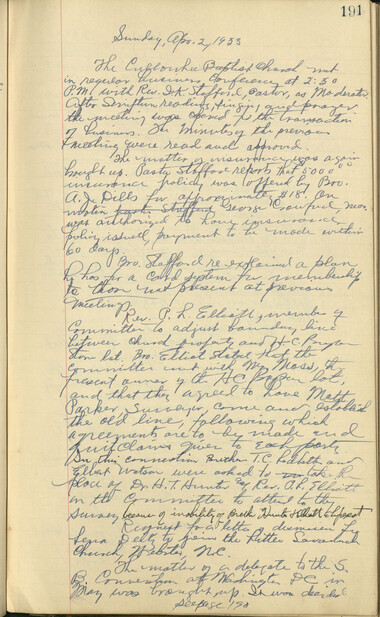 191
Sunday, Apr. 2, 1933
The Cullowhee Baptist Church met
in regular business conference at 2:30
P.M. with Rev. I.K. Stafford, Pastor, as Moderator
After Scripture reading, singing and prayer
the meeting was opened to the transaction
of business. The Minutes of the previous
meeting were read and approved.
The matter of insurance was again
brought up. Pastor Stafford reports that 5000.00
insurance policy was offered by Bro.
A.J. Dills for approximately $18. On
motion George
was authorized to have insurance
policy issued, payment to be made within
60 days.
Bro. Stafford re-explained a plan
he has for a card system for membership
to those not present at previous
meeting.
Rev. P. L. Elliott, member of
Committee to adjust boundary line
between church property and H.C.
lot. Bro. Elliott stated that the
committee met with Mr. Moss, the
present owner of the H.C. lot,
and that they agreed to have Matt
Parker, Surveyor, come and establish
the old line, following which
agreements are to be made and
quit claims given to each party
In this connection Brethren T.C. and
Elbert Watson were asked to take the
place of Dr. H.T. Hunter & Rev. P.L. Elliott
on the Committee to attend to the
survey because of inability of Breth. Hunter & Elliott to be present
Request for a letter of dismission for
to join the Little Savannah
Church, Webster, N.C.
The matter of a delegate to the S.
B. Convention at Washington DC in
May was brought up. It was decided
see page 190